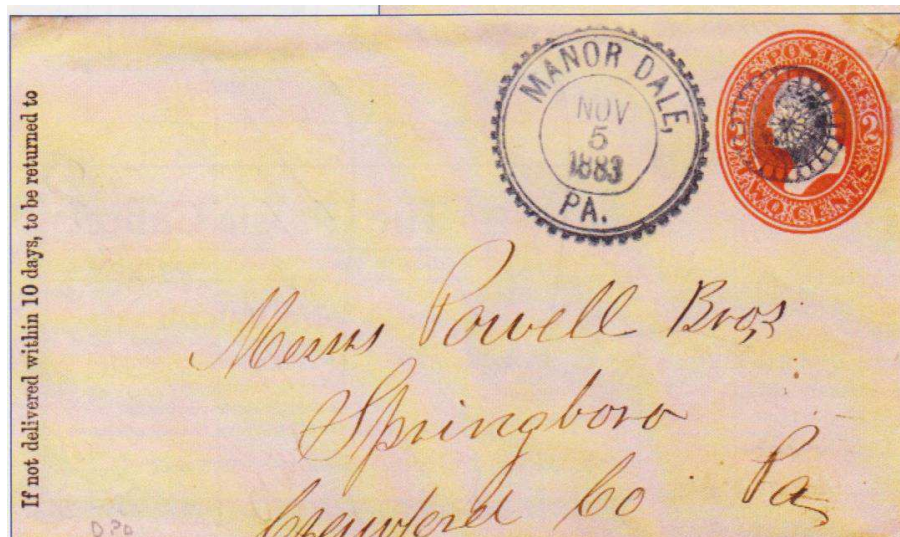 If not delivered within 10 days, to be returned to
MANOR DALE,
NOV
5
1883
PA.
POSTAGE
TWO CENTS
2
2
Messrs Powell Bros,
Springboro
Crawford Co Pa
DPO